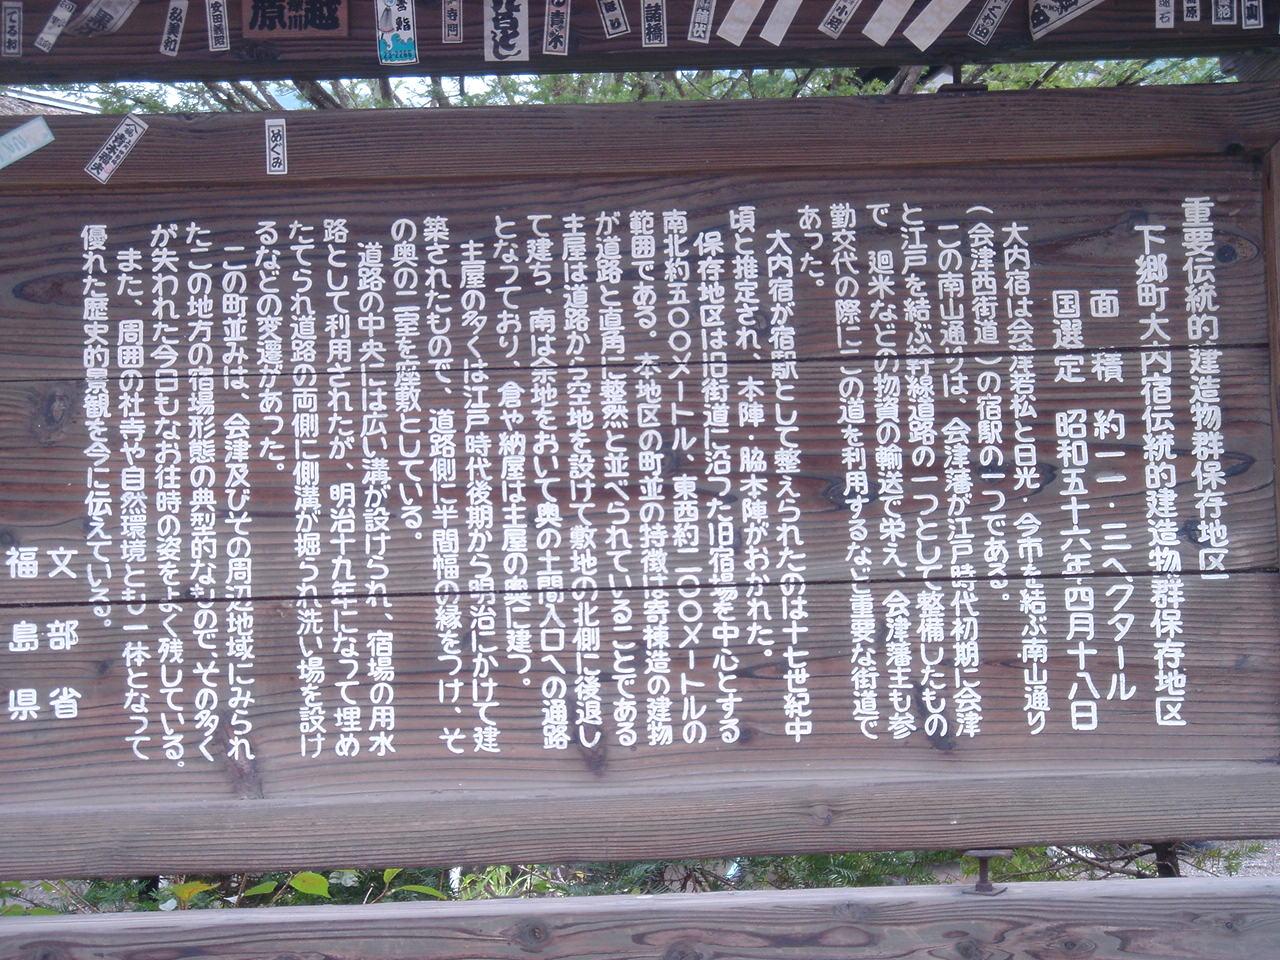 重要伝統的建造物群保存地区
下郷町大内宿伝統的建造物群保存地区
面積 約一一・三ヘクタール
国選定 昭和五十六年四月十八日
大内宿は会津若松と日光・今市を結ぶ南山通り
(会津西街道)の宿駅の一つである。
この南山通りは、会津藩が江戸時代初期に会津
と江戸を結ぶ幹線道路の一つとして整備したもの
で、廻米などの物資の輸送で栄え、会津藩主も参
勤交代の際にこの道を利用するなど重要な街道で
あった。
大内宿が宿駅として整えられたのは十七世紀中
頃と推定され、本陣・脇本陣がおかれた。
保存地区は旧街道に沿った旧宿場を中心とする
南北約五〇〇メートル、東西約二〇〇メートルの
範囲である。本地区の町並の特徴は寄棟造の建物
が道路と直角に整然と並べられていることである
主屋は道路から空地を設けて敷地の北側に後退し
て建ち、南は余地をおいて奥の土間入口への通路
となっており、倉や納屋は主屋の奥に建つ。
主屋の多くは江戸時代後期から明治にかけて建
築されたもので、道路側に半間幅の縁をつけ、そ
の奥の二室を座敷としている。
道路の中央には広い溝が設けられ、宿場の用水
路として利用されたが、明治十九年になって埋め
たてられ道路の両側に側溝が堀られ洗い場を設け
るなどの変遷があった。
この町並みは、会津及びその周辺地域にみられ
たこの地方の宿場形態の典型的なもので、その多く
が失われた今日もなお往時の姿をよく残している。
また、周囲の社寺や自然環境とも一体となって
優れた歴史的景観を今に伝えている。
文部省
福島県
めぐみ
安田義昭